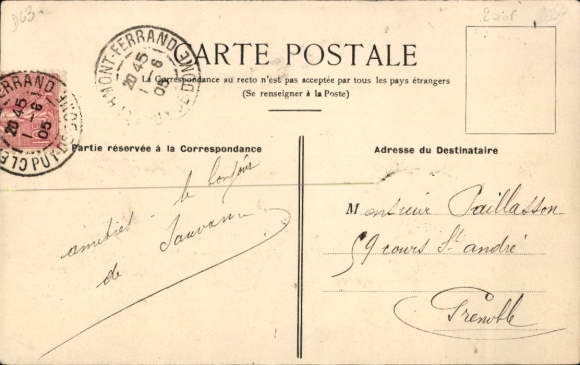 D63
CARTE POSTALE
La Correspondance au recto n'est pas acceptée par tous les pays étrangers
(Se renseigner à la Poste)
CLERMONT-FERRAND PUY-DE-DOME
20 45
1 - 6
05
CLERMONT-FERRAND PUY-DE-DOME
20 45
1 - 6
05
Partie réservée à la Correspondance
Adresse du Destinataire
le bonjour
amitiés
de
Monsieur Paillasson
59 cours St André
Grenoble